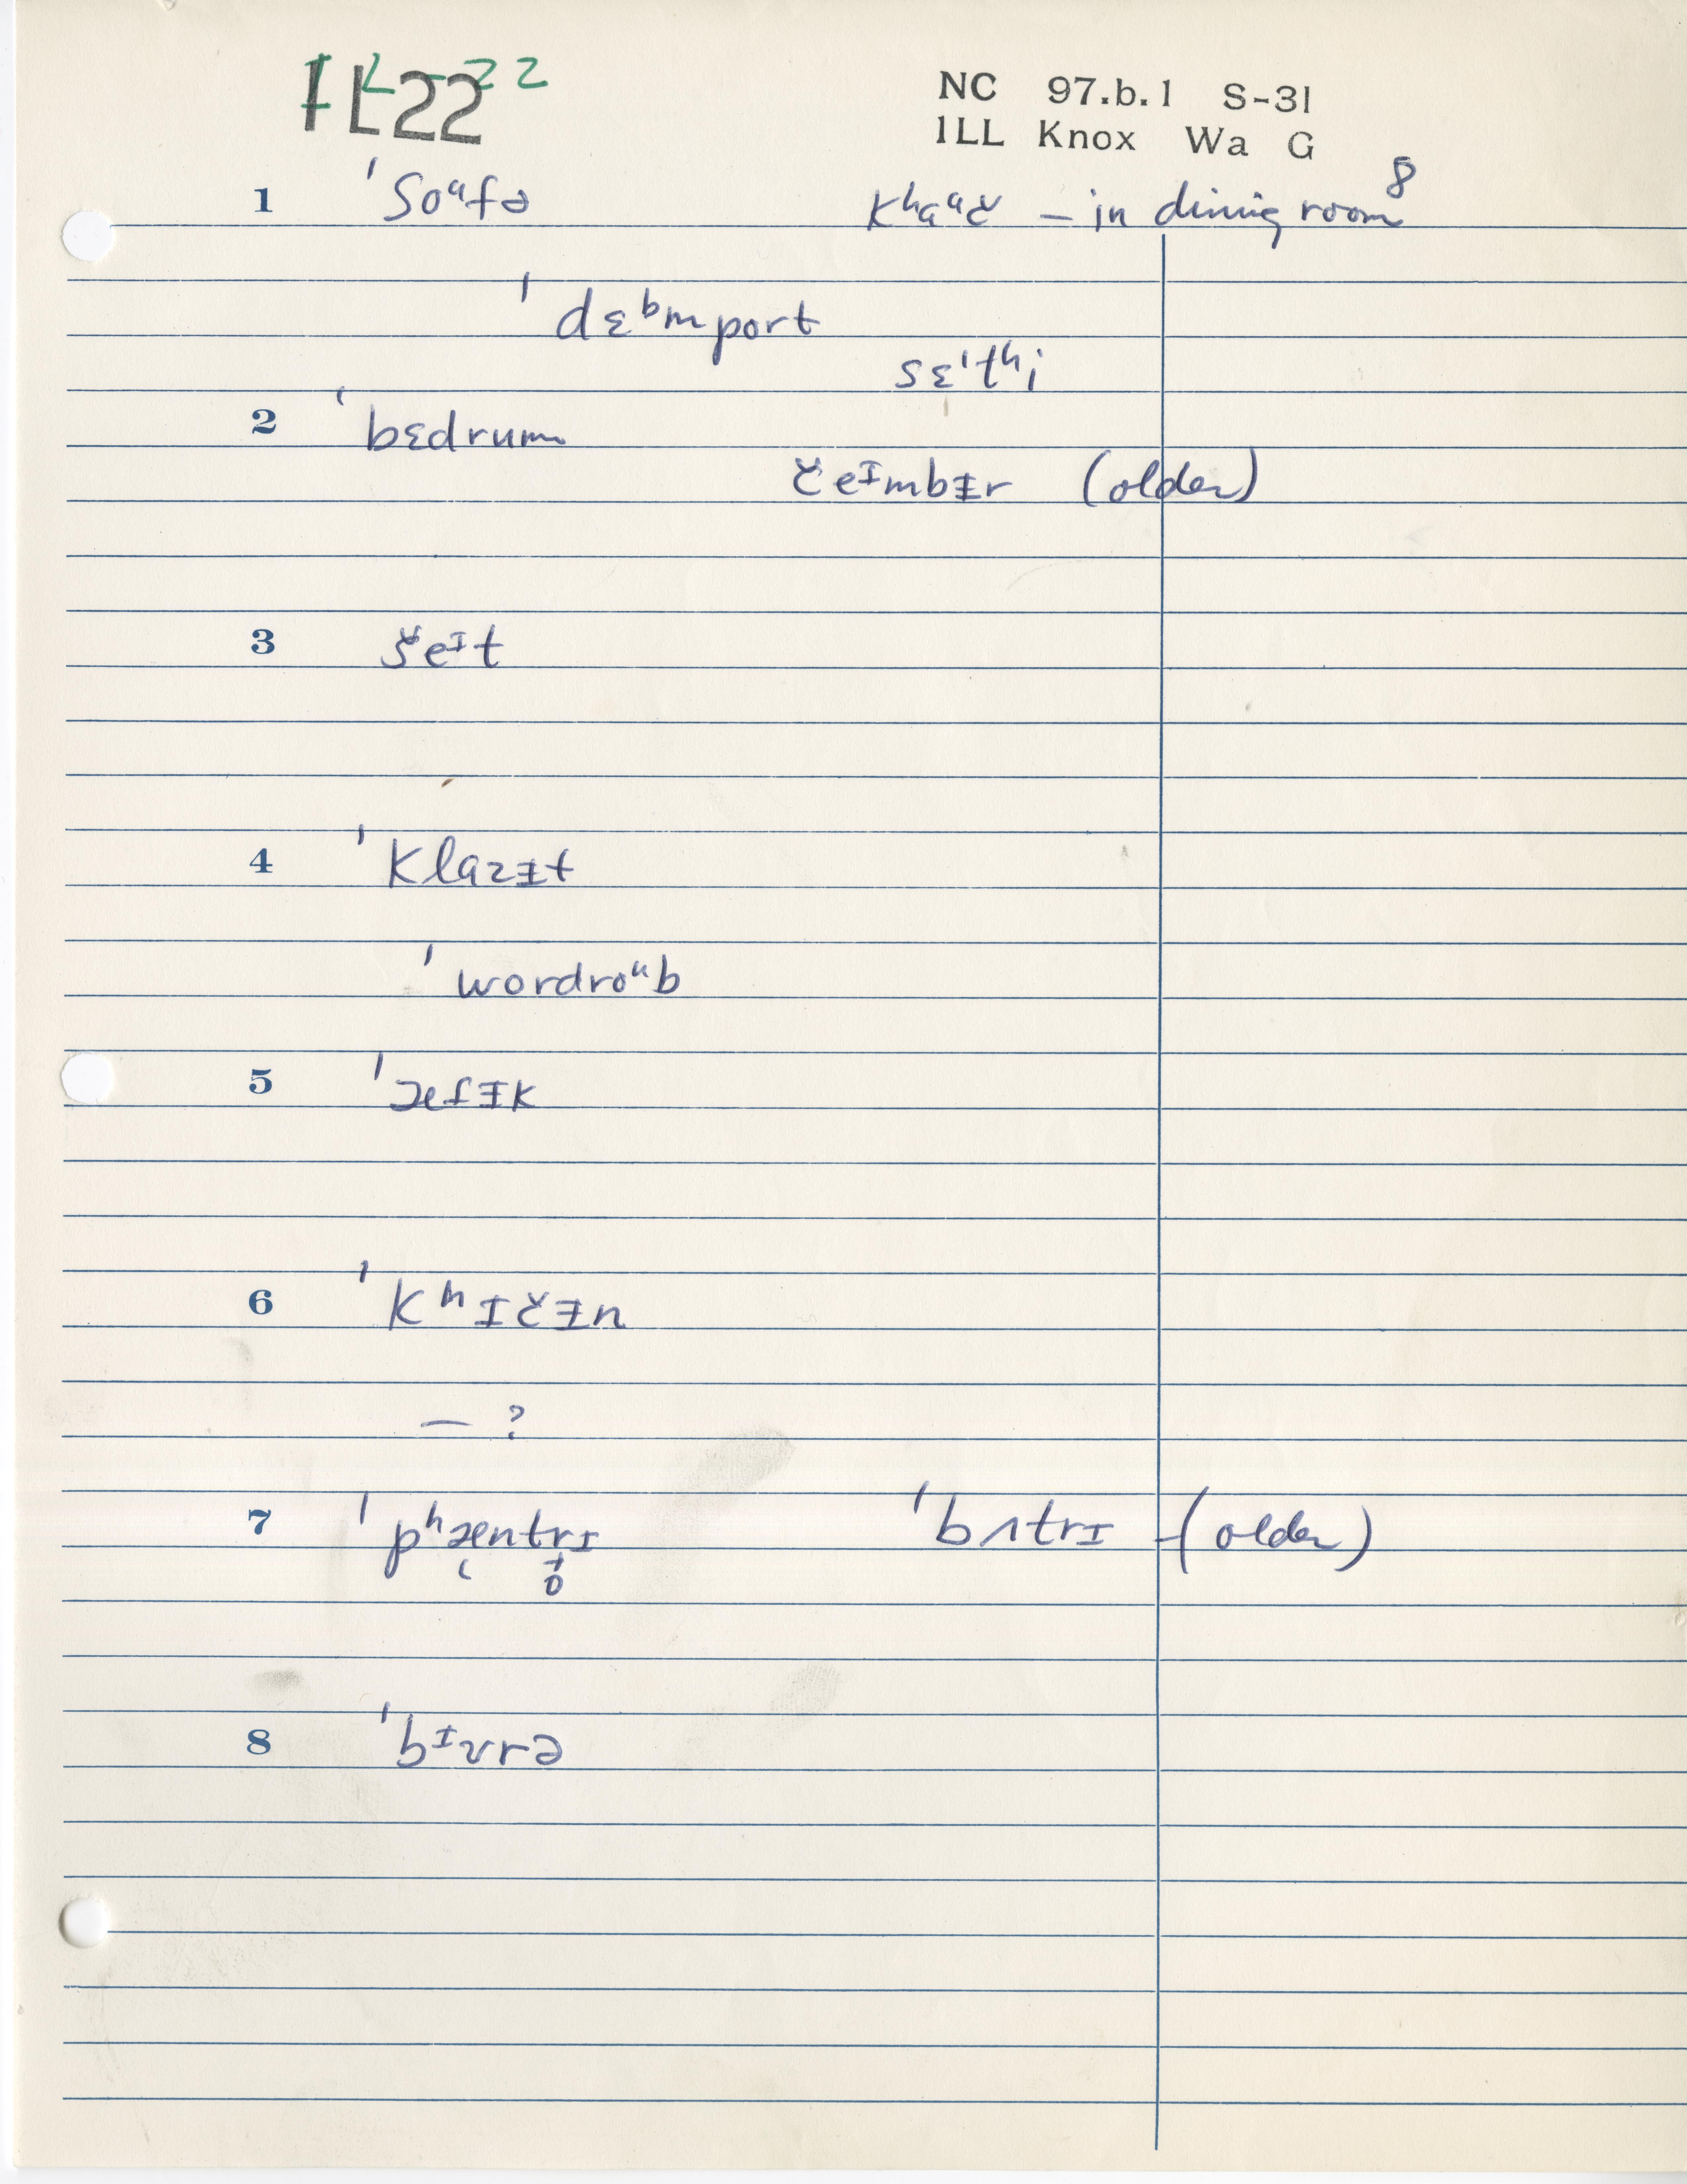 IL-22
IL22
NC 97.b.1 S-31
ILL Knox Wa G
8
1 ˈsoᵘfə kʰaᵘč – in dining room
ˈdɛᵇmport
sɛˈtʰi
2 ˈbɛdrum
čeᶦmbɨr (older)
3 šeᶦt
4 ˈklazɨt
ˈwordroᵘb
5 ˈæfɨk
6 ˈkʰɪčɨn
— ?
7 ˈpʰæntrɪ ˈbʌtrɪ – (older)
8 ˈbᶦʊrə